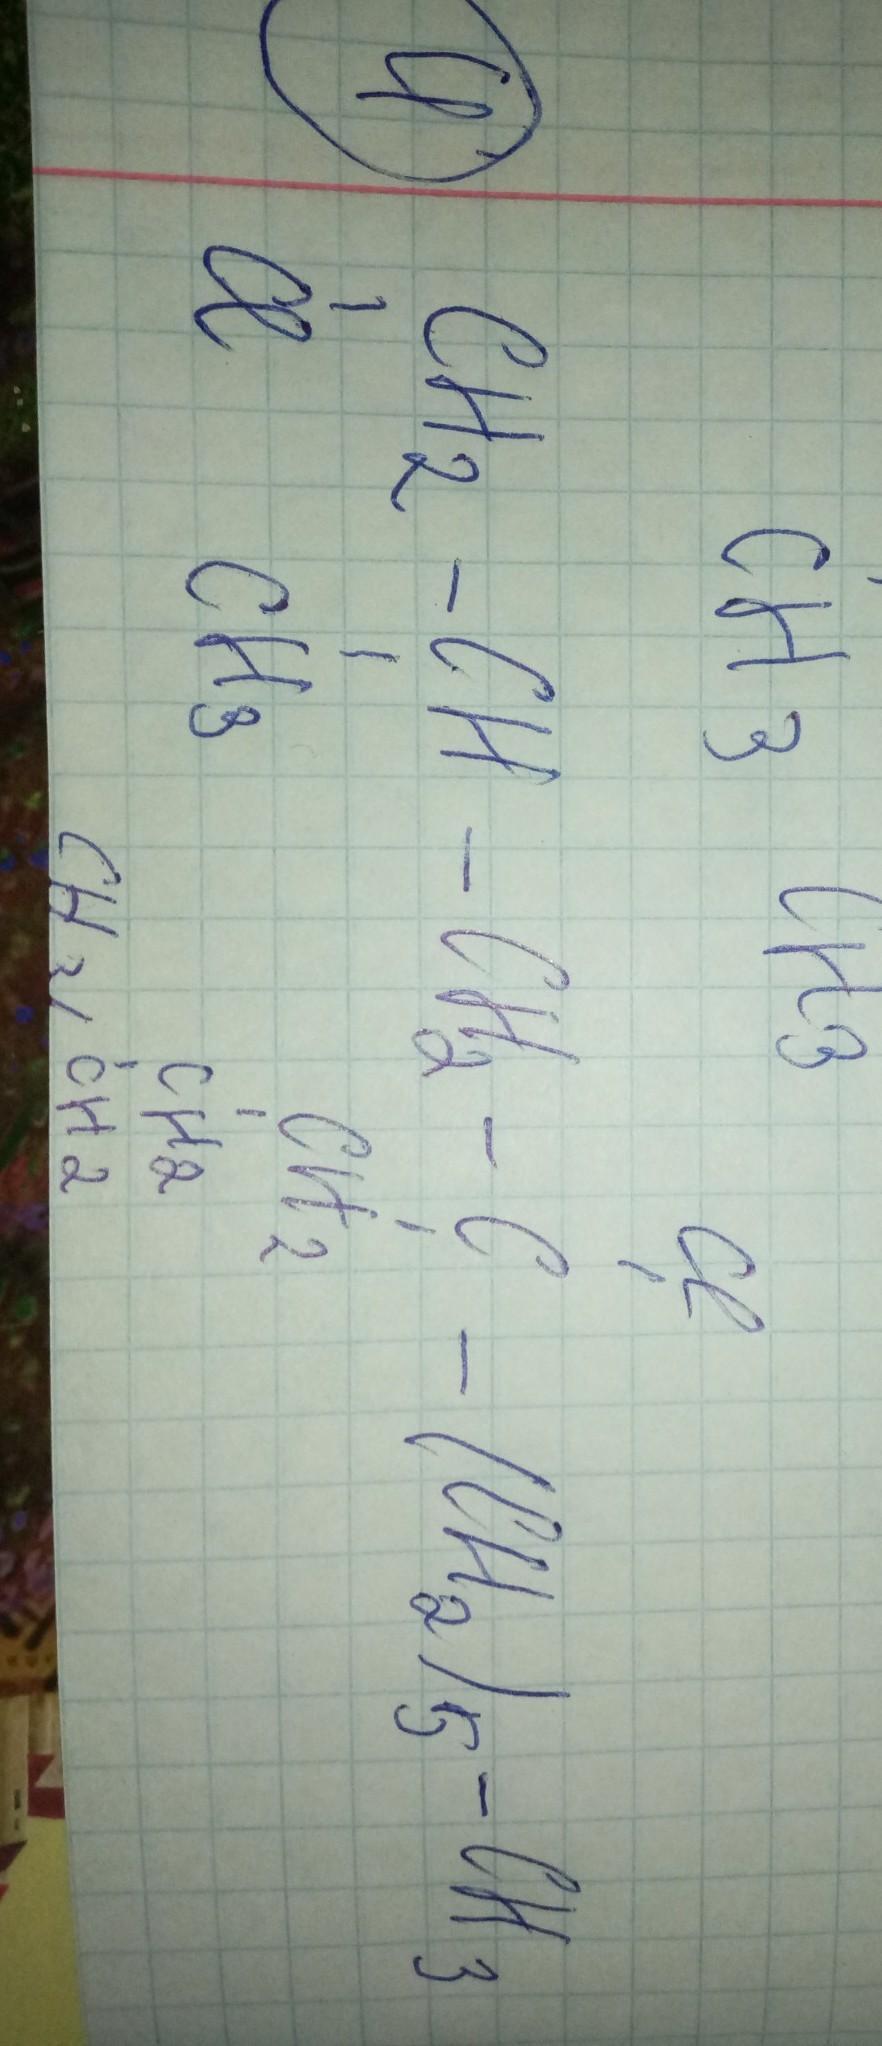 CH3
CH3
Cl
4
CH2-CH-CH2-C-(CH2)5-CH3
Cl
CH3
CH2
CH2
CH2